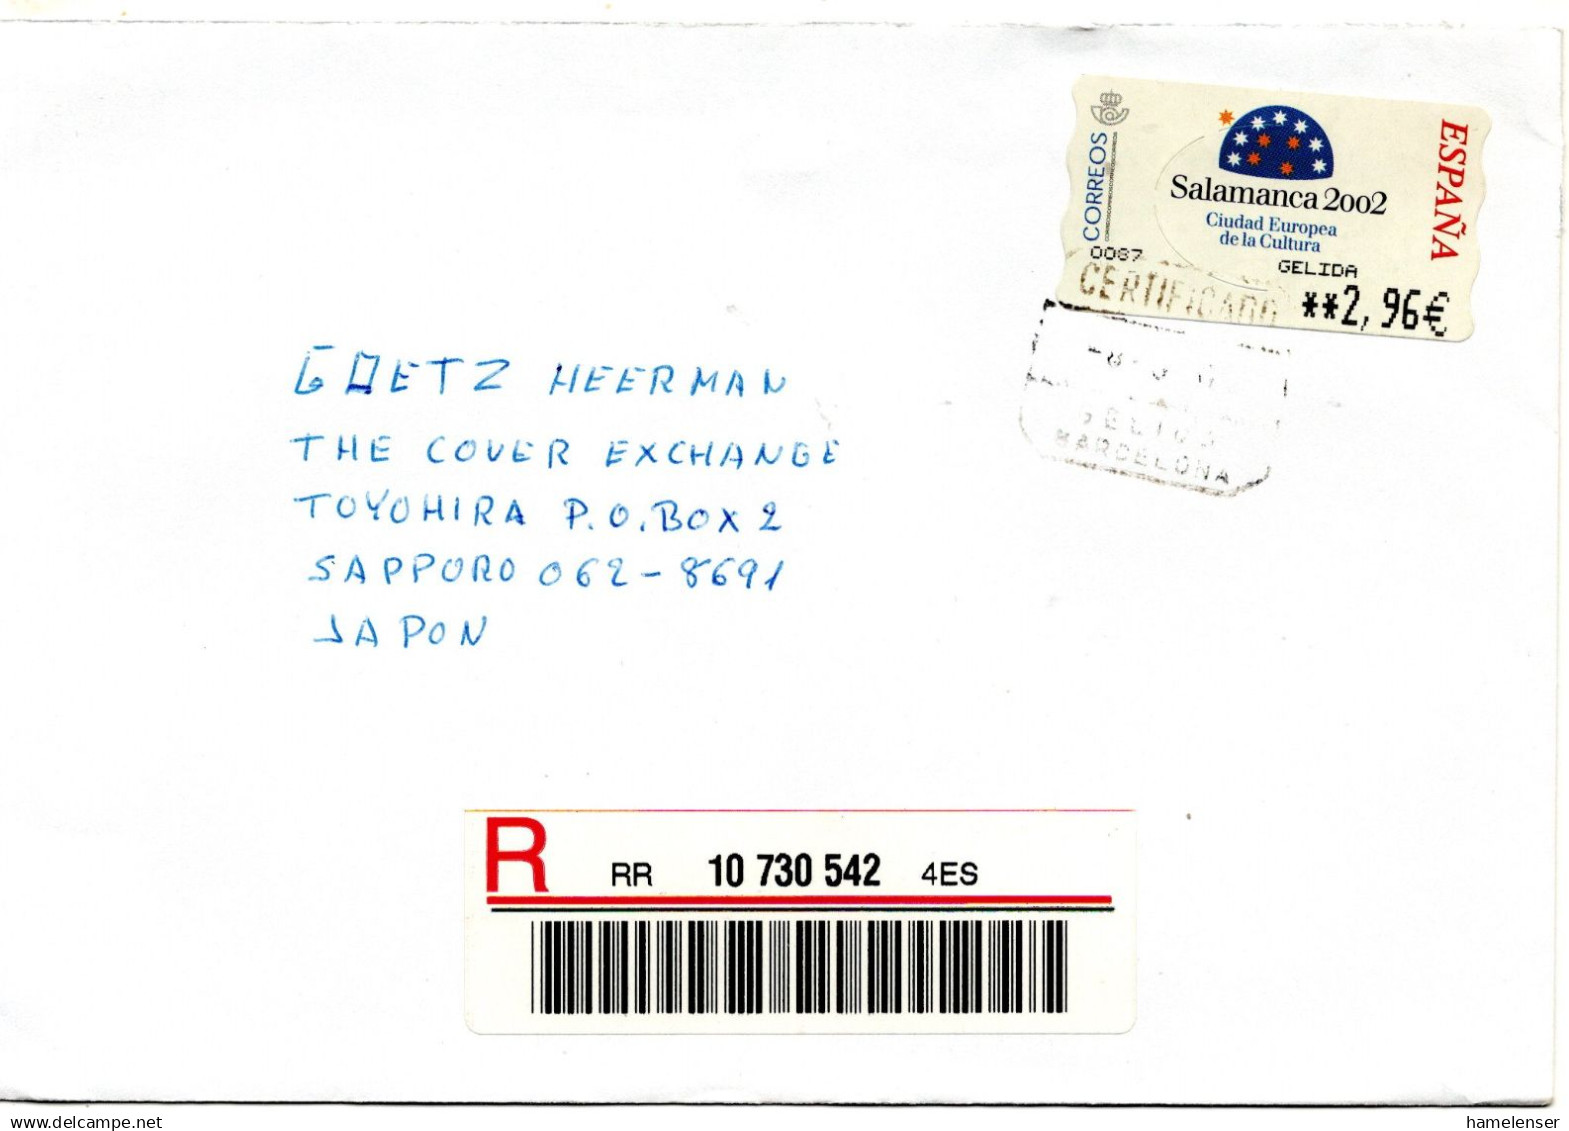 CORREOS
Salamanca 2002
Ciudad Europea
de la Cultura
ESPAÑA
0087
GELIDA
CERTIFICADO
**2,96€
BARCELONA
GOETZ HEERMAN
THE COVER EXCHANGE
TOYOHIRA P.O.BOX 2
SAPPORO 062-8691
JAPON
R RR 10 730 542 4ES
www.delcampe.net
hamelenser